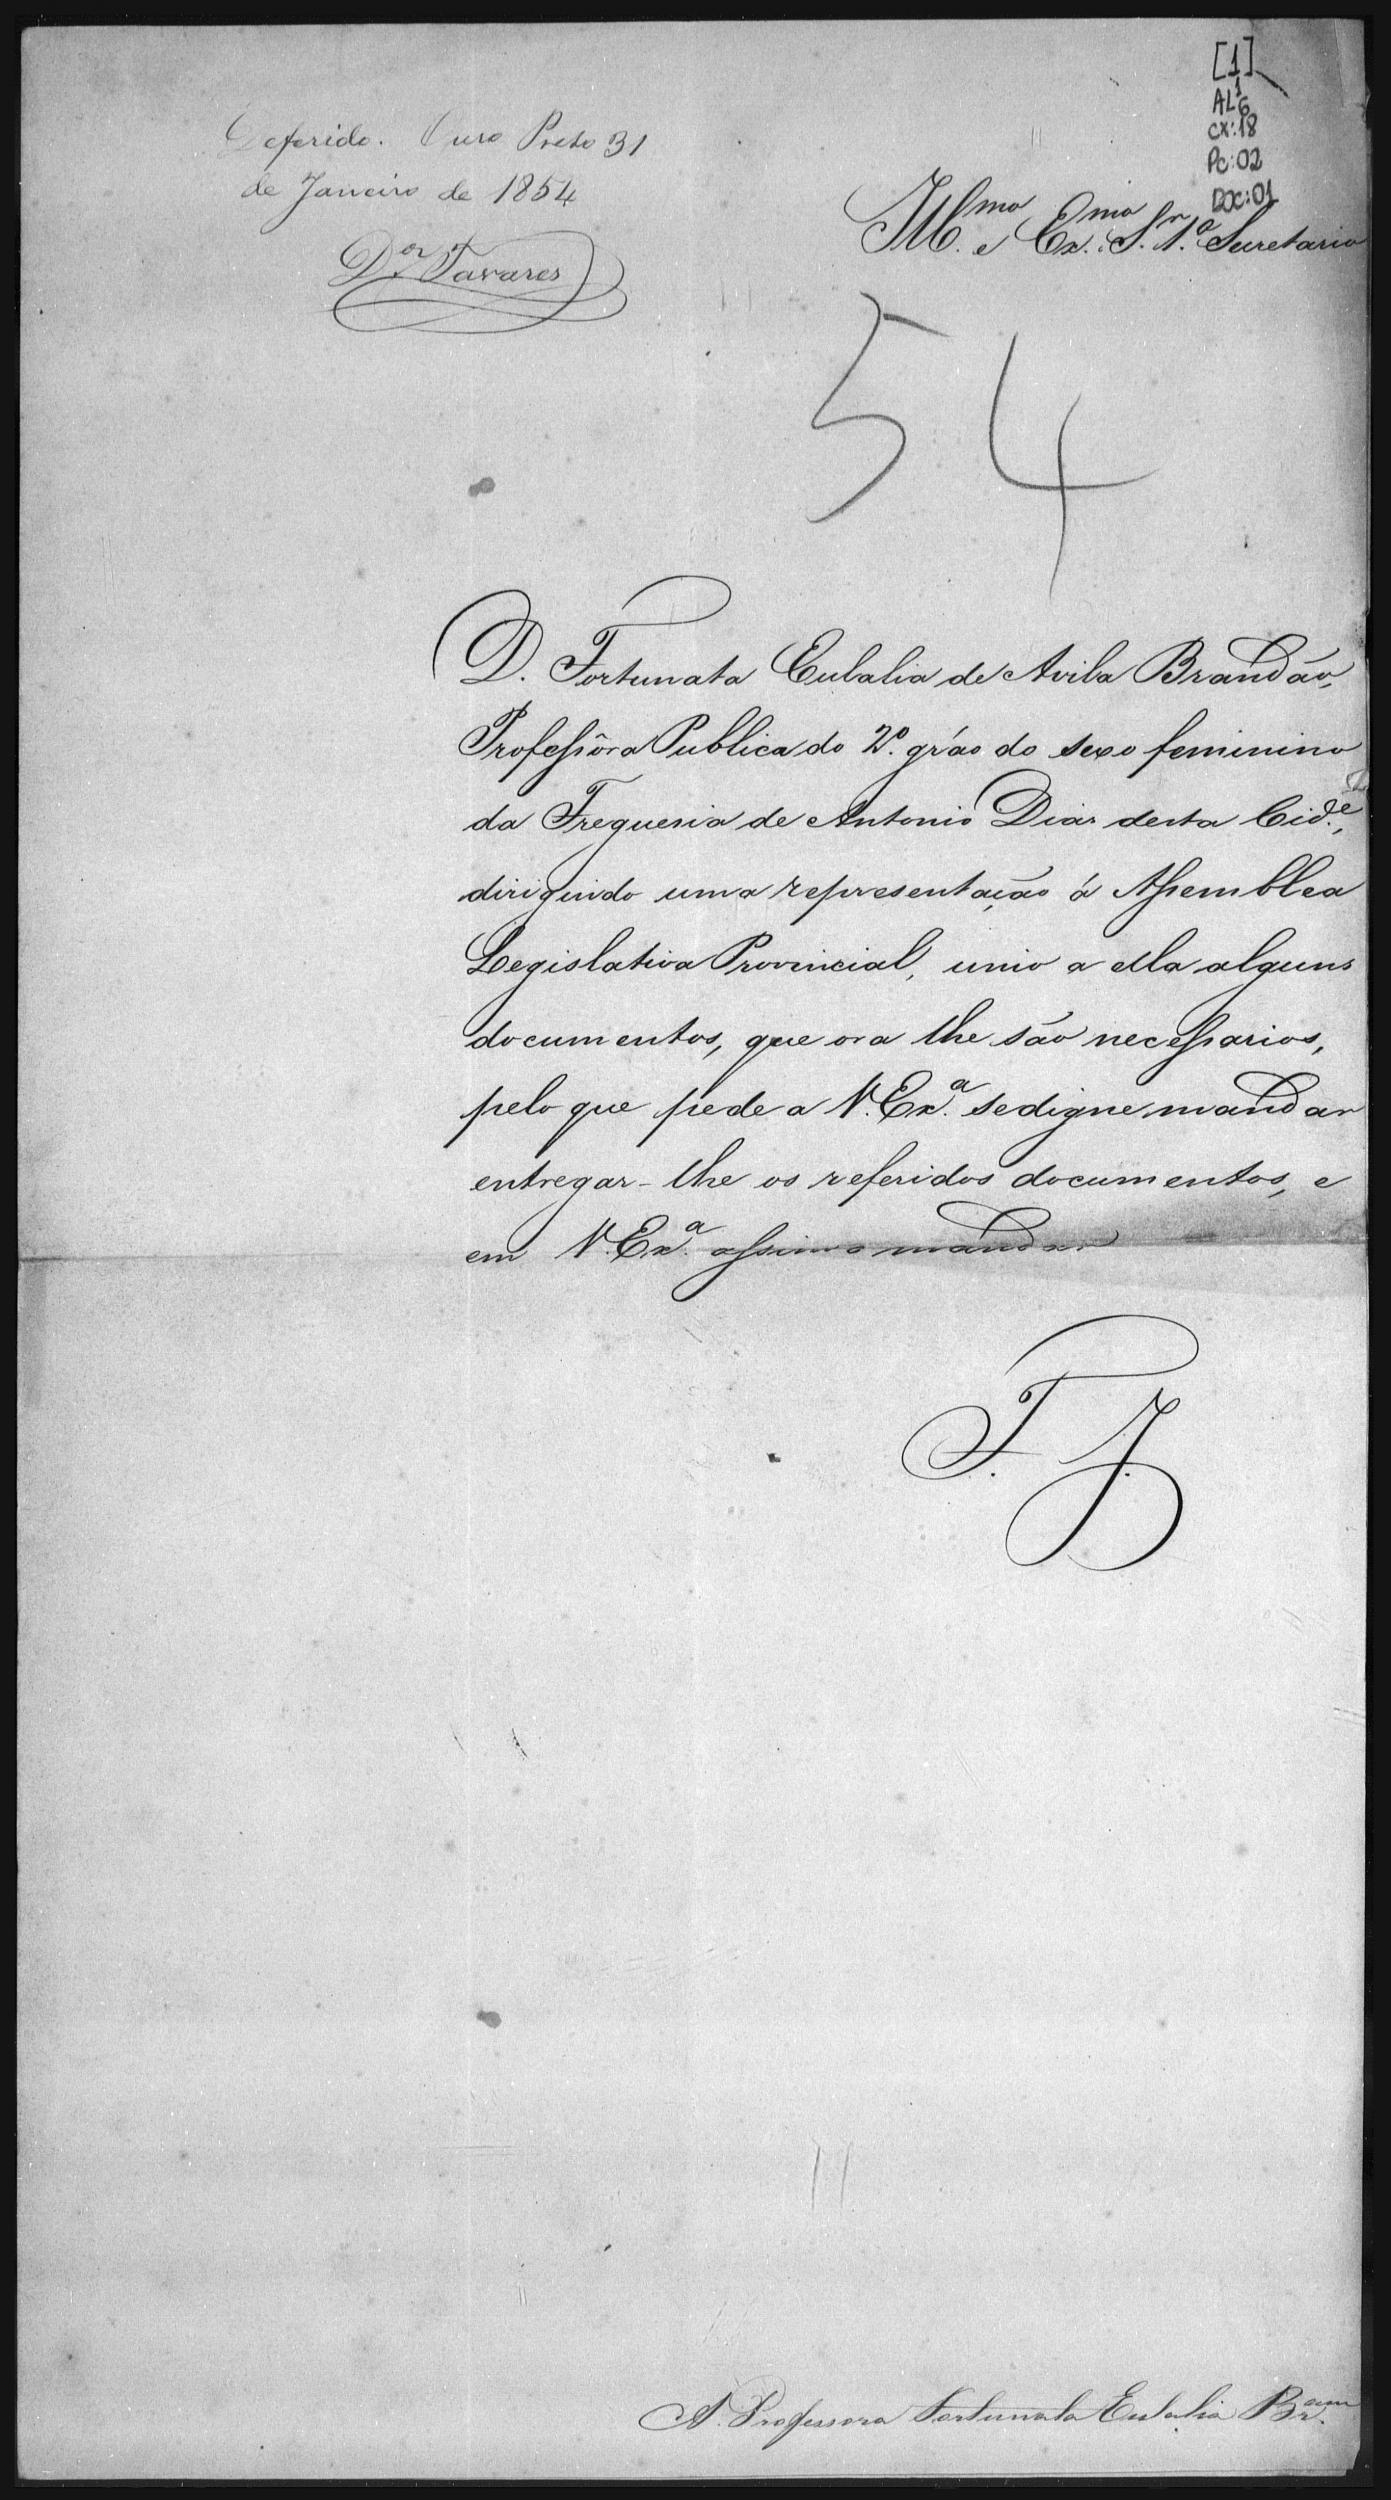 [1]
AL 1 6
CX: 18
PC: 02
DOC: 01
Deferido. Ouro Preto 31
de Janeiro de 1854
Dor Tavares
Illmo. e Exmo. Sr. 1.º Secretario
54
D. Fortunata Eulalia de Avila Brandão,
Professôra Publica do 2º. gráo do sexo feminino
da Freguesia de Antonio Dias desta Cide.,
dirigindo uma representação á Assemblea
Legislativa Provincial, unio a ella alguns
documentos, que ora lhe são necessarios,
pelo que pede a V. Exª. se digne mandar
entregar-lhe os referidos documentos, e
em V. Exª. assim o mandar
F. J.
A Professora Fortunata Eulalia Bram.